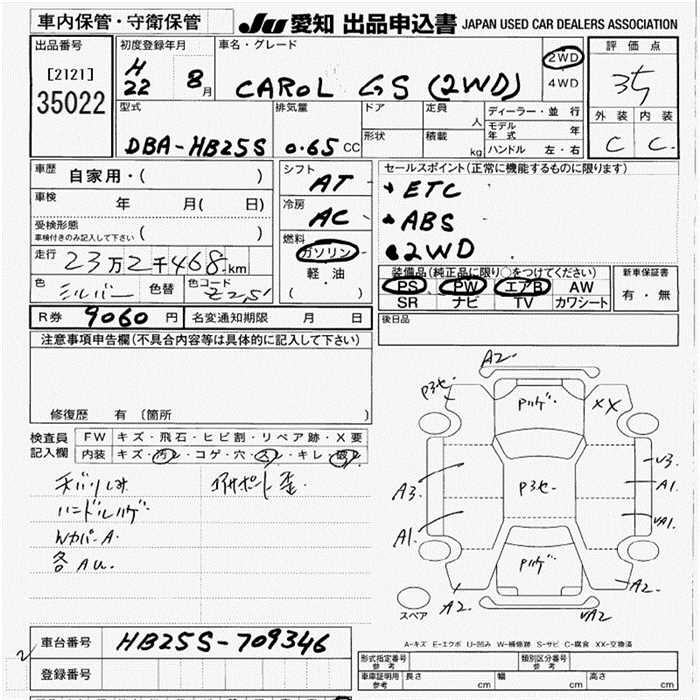 車内保管・守衛保管
JU 愛知 出品申込書 JAPAN USED CAR DEALERS ASSOCIATION
出品番号
[2121]
35022
初度登録年月
H
22 8月
車名・グレード
CAROL GS (2WD)
2WD
4WD
評価点
35
外装 内装
C C
型式
DBA-HB25S
排気量
0.65 CC
ドア
形状
定員 人
積載 kg
ディーラー・並行
モデル年式 年
ハンドル 左・右
車歴 自家用・( )
車検 年 月( 日)
受検形態
車検付きのみ記入して下さい ( )
走行 23万2千468km
色 シルバー 色替 色コード Z2S
シフト
AT
冷房
AC
燃料
ガソリン
軽・油
( )
セールスポイント(正常に機能するものに限ります)
・ETC
・ABS
・2WD
装備品(純正品に限り○をつけてください)
PS PW エアB AW
SR ナビ TV カワシート
新車保証書
有・無
R券 9060 円 名変通知期限 月 日
後日品
注意事項申告欄(不具合内容等は具体的に記入して下さい)
修復歴 有 〔箇所 〕
検査員
記入欄
FW キズ・飛石・ヒビ割・リペア跡・X要
内装 キズ・汚レ・コゲ・穴・スレ・キレ・破レ
ハンドルハゲ
各AU.
A2
P3セ
Pハゲ
XX
A3
A1
P3セ
A1
Pハゲ
A2
A2
スペア
A-キズ E-エクボ U-凹み W-補修跡 S-サビ C-腐食 XX-交換済
車台番号 HB25S-709346
登録番号
型式指定番号
参考
類別区分番号
参考
車庫証明用
参考
長さ cm 幅 cm 高さ cm